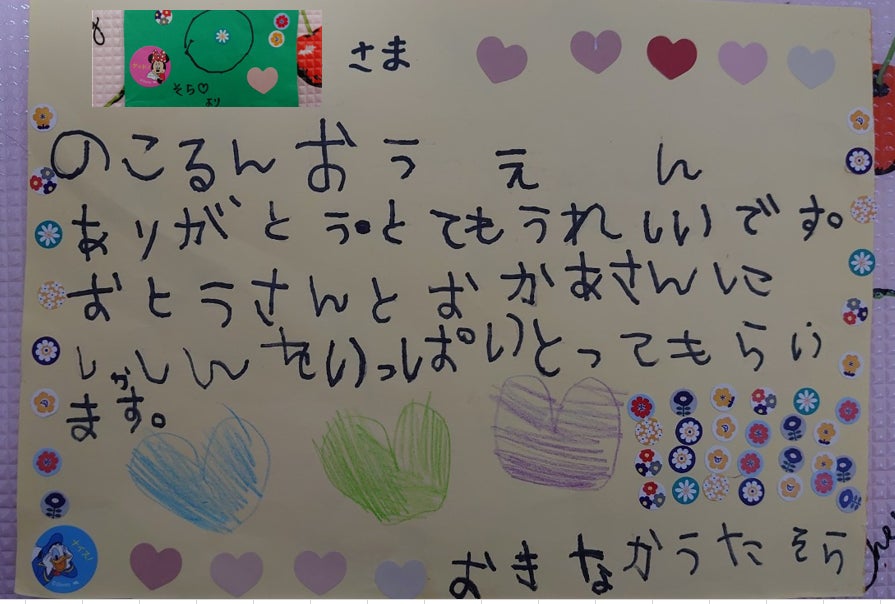 さま
そら♡
より
のこるんおうえん
ありがとう。とてもうれしいです。
おとうさんとおかあさんに
しゃしんをいっぱいとってもらい
ます。
ナイス!
おきなかうたそら